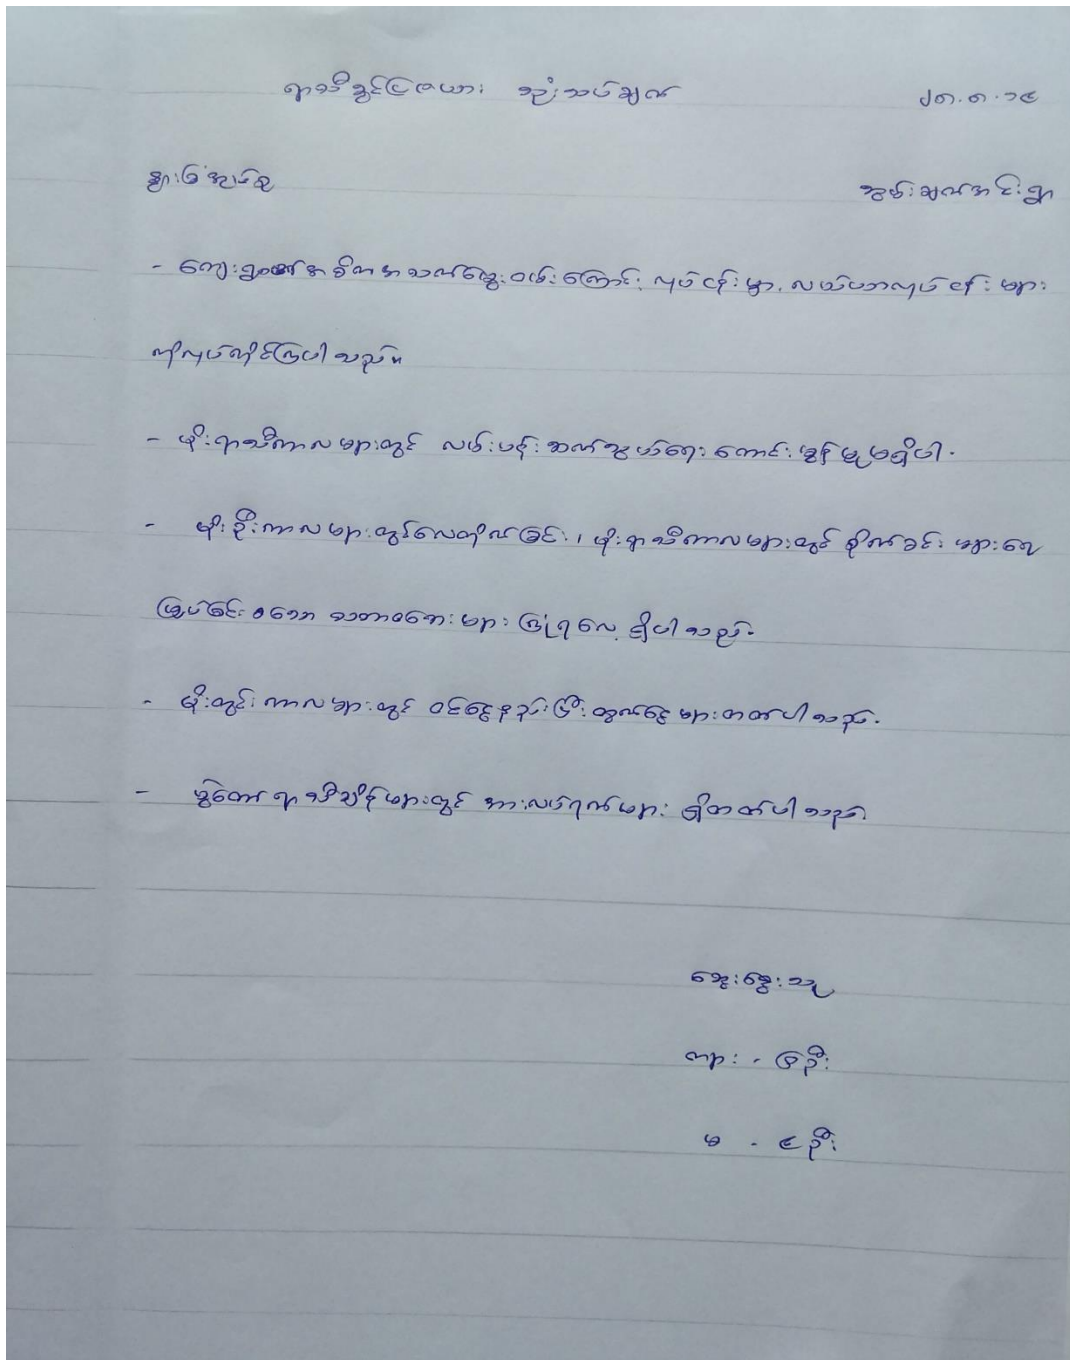 ရာသီခွင်ပြဇယား သုံးသပ်ချက် ၂၈.၈.၁၄
နွားခြံအုပ်စု ကျွမ်းချက်အင်းရွာ
- ကျေးရွာ၏အဓိကအသက်မွေးဝမ်းကြောင်း လုပ်ငန်းမှာ လယ်ယာလုပ်ငန်းများ
ကိုလုပ်ကိုင်ကြပါသည်။
- မိုးရာသီကာလများတွင် လမ်းပန်းဆက်သွယ်ရေး ကောင်းမွန်မှုမရှိပါ.
- မိုးဦးကာလများတွင်လေတိုက်ခြင်း၊ မိုးရာသီကာလများတွင် စိုက်ခင်းများရေ
မြှုပ်ခြင်း စသော သဘာဝဘေးများ ကြုံရလေ့ရှိပါသည်.
- မိုးတွင်းကာလများတွင် ဝင်ငွေနည်းပြီး ထွက်ငွေများတတ်ပါသည်.
- ပွဲတော်ရာသီချိန်များတွင် အားလပ်ရက်များ ရှိတတ်ပါသည်.
ဆွေးနွေးသူ
ကျား - ၉ဦး
မ - ၄ဦး